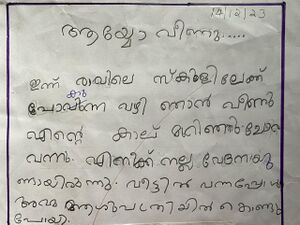 14/12/23
ആയ്യോ വീണു.....
ഇന്ന് രാവിലെ സ്കൂളിലേക്ക്
കു
പോവുന്ന വഴി ഞാൻ വീണു
എന്റെ കാല് മുറിഞ്ഞു. ചോര
വന്നു. എനിക്ക് നല്ല വേദനയു
ണായിരുന്നു. വീട്ടിൽ വന്നപ്പോൾ
അമ്മ ആശുപത്രിയിൽ കൊണ്ടു
പോയി.